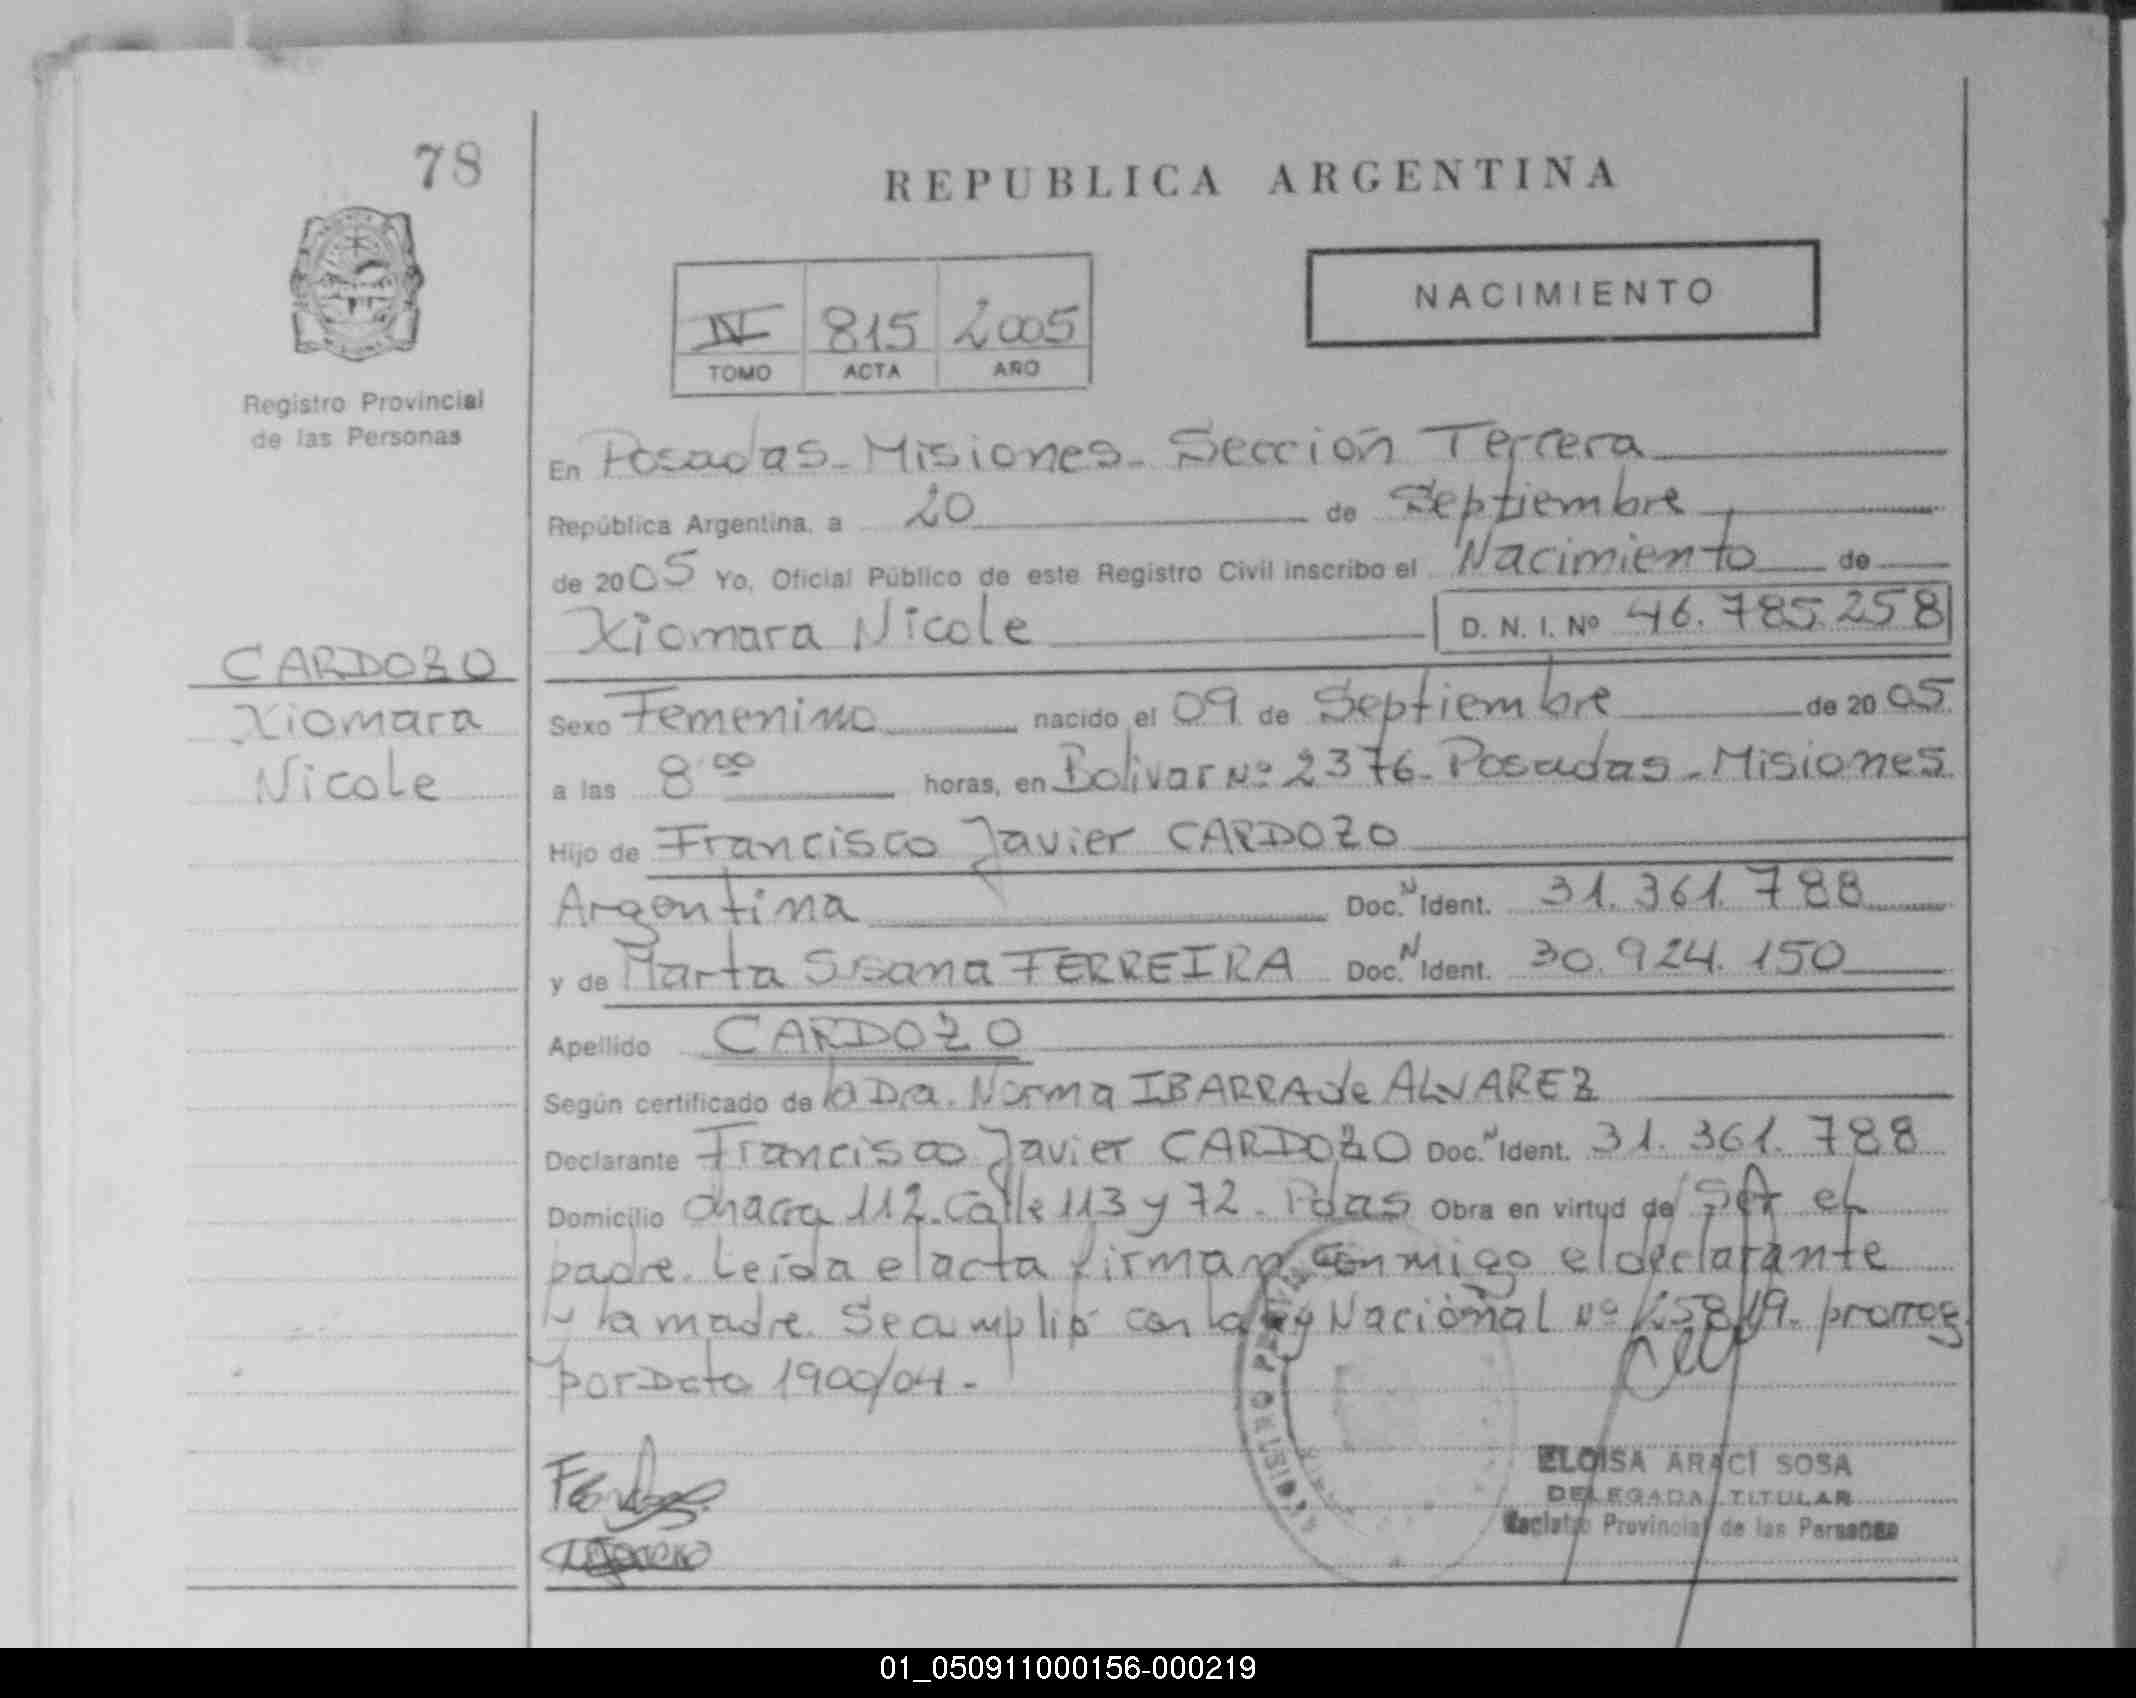 78
REPUBLICA ARGENTINA
NACIMIENTO
IV 815 2005
TOMO ACTA AÑO
Registro Provincial
de las Personas
En Posadas - Misiones - Sección Tercera
República Argentina, a 20 de Septiembre
de 2005 Yo, Oficial Público de este Registro Civil inscribo el Nacimiento de
Xiomara Nicole D. N. I. Nº 46.785.258
CARDOZO
Xiomara
Nicole
Sexo Femenino nacido el 09 de Septiembre de 2005
a las 8 00 horas, en Bolivar Nº 2376 - Posadas - Misiones
Hijo de Francisco Javier CARDOZO
Argentina Doc. N Ident. 31.361.788
y de Marta Susana FERREIRA Doc. N Ident. 30.924.150
Apellido CARDOZO
Según certificado de la Dra. Norma IBARRA de ALVAREZ
Declarante Francisco Javier CARDOZO Doc. N Ident. 31.361.788
Domicilio chacra 112. Calle 113 y 72 - Pdas Obra en virtud de Ser el
padre. Leída el acta firman conmigo el declarante
y la madre. Se amplió con la Ley Nacional Nº 25819. prorrog
por Dcto 1900/04 -
ELOISA ARACI SOSA
DELEGADA TITULAR
Registro Provincial de las Personas
01_050911000156-000219